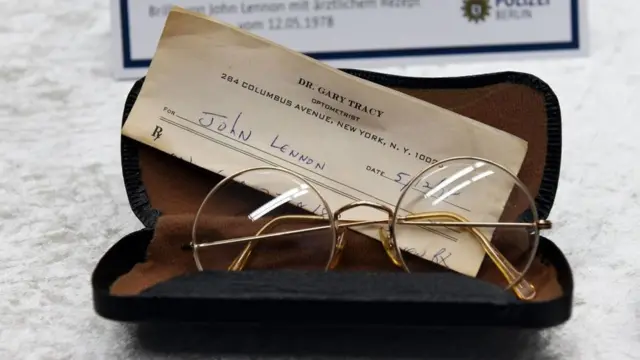 Brille von John Lennon mit ärztlichem Rezept
vom 12.05.1978
POLIZEI
BERLIN
DR. GARY TRACY
OPTOMETRIST
284 COLUMBUS AVENUE, NEW YORK, N. Y. 1002
FOR John Lennon
DATE 5/12
Rx